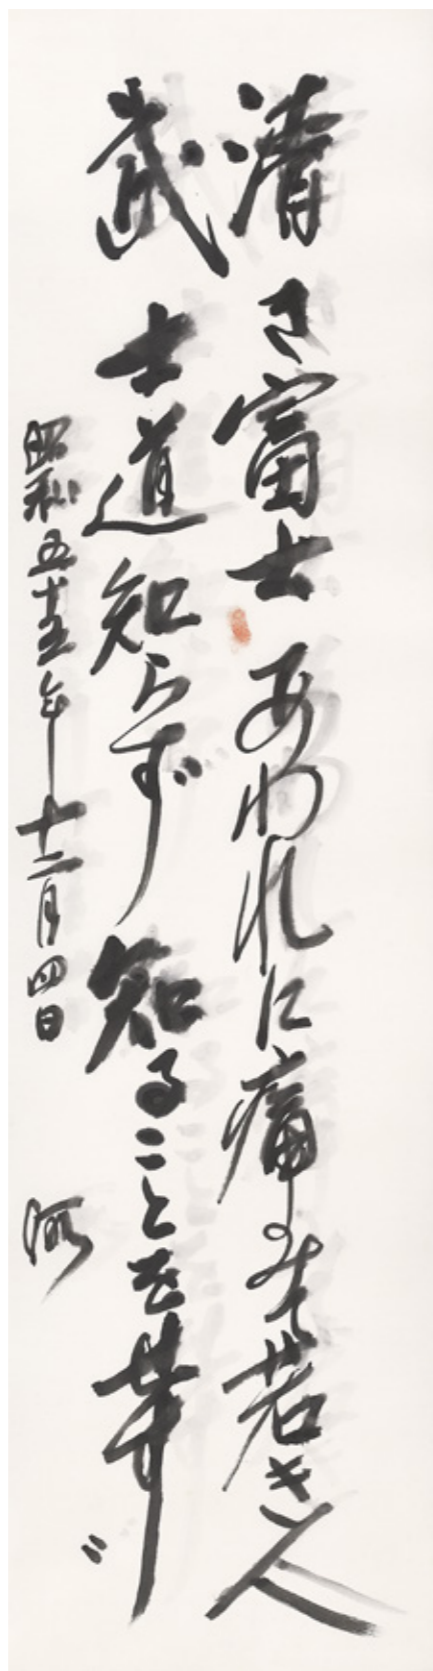 清き富士 あわれに痛みも若き人
武士道知らず 知ることを葬ず
昭和五十五年十二月四日 河